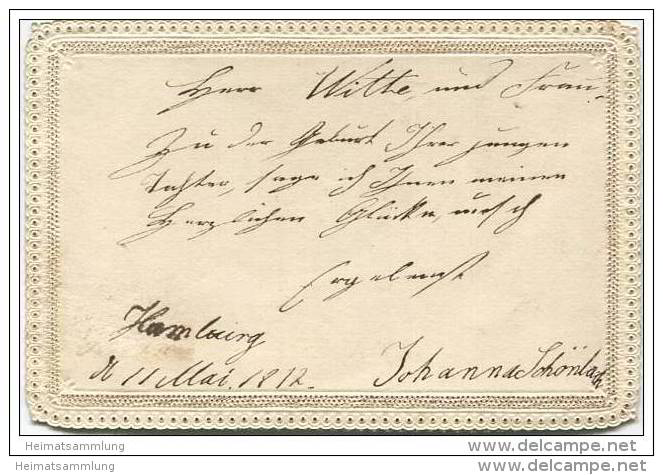 Herr Witte, und Frau.
Zu der Geburt Ihrer jungen
Tochter, sage ich Ihnen meinen
Herzlichen Glückwunsch
Ergebenst
Hamburg
d 11 Mai. 1812.
Johanna Schönla
Heimatsammlung
Heimatsammlung
www.heimatsammlung.de
www.heimatsammlung.de